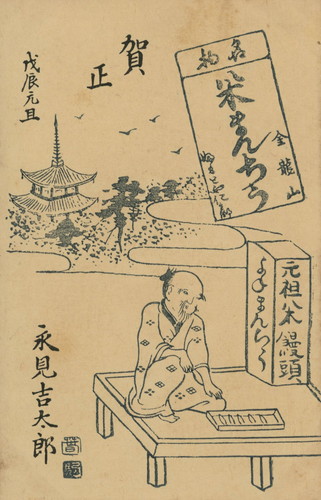 名物
米まんぢう
金龍山
賀正
戊辰元旦
元祖米饅頭
よねまんぢう
永見吉太郎